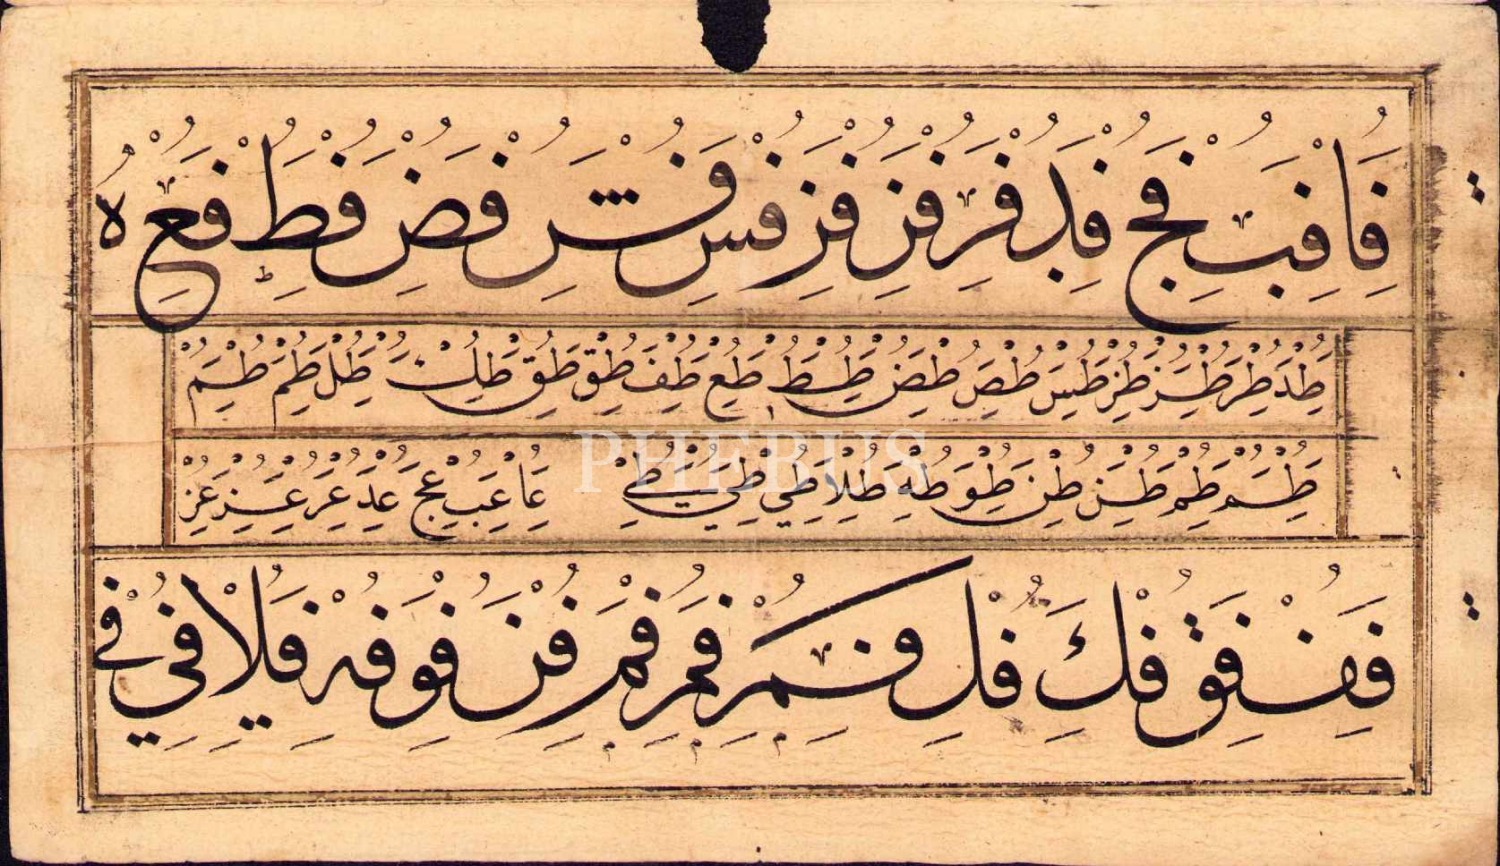 فا فب فج فد فر فز فز فس فش فض فط فع ه
طد طر طر طز طس طص طض طط طع طف طق طق طك طل طم طم
طم طم طن طن طو طه طلا طي طي طے عا عب عج عد عر عز عز
فف فق فك فل فم فم فم فن فو فه فلا في في
PHEBUS